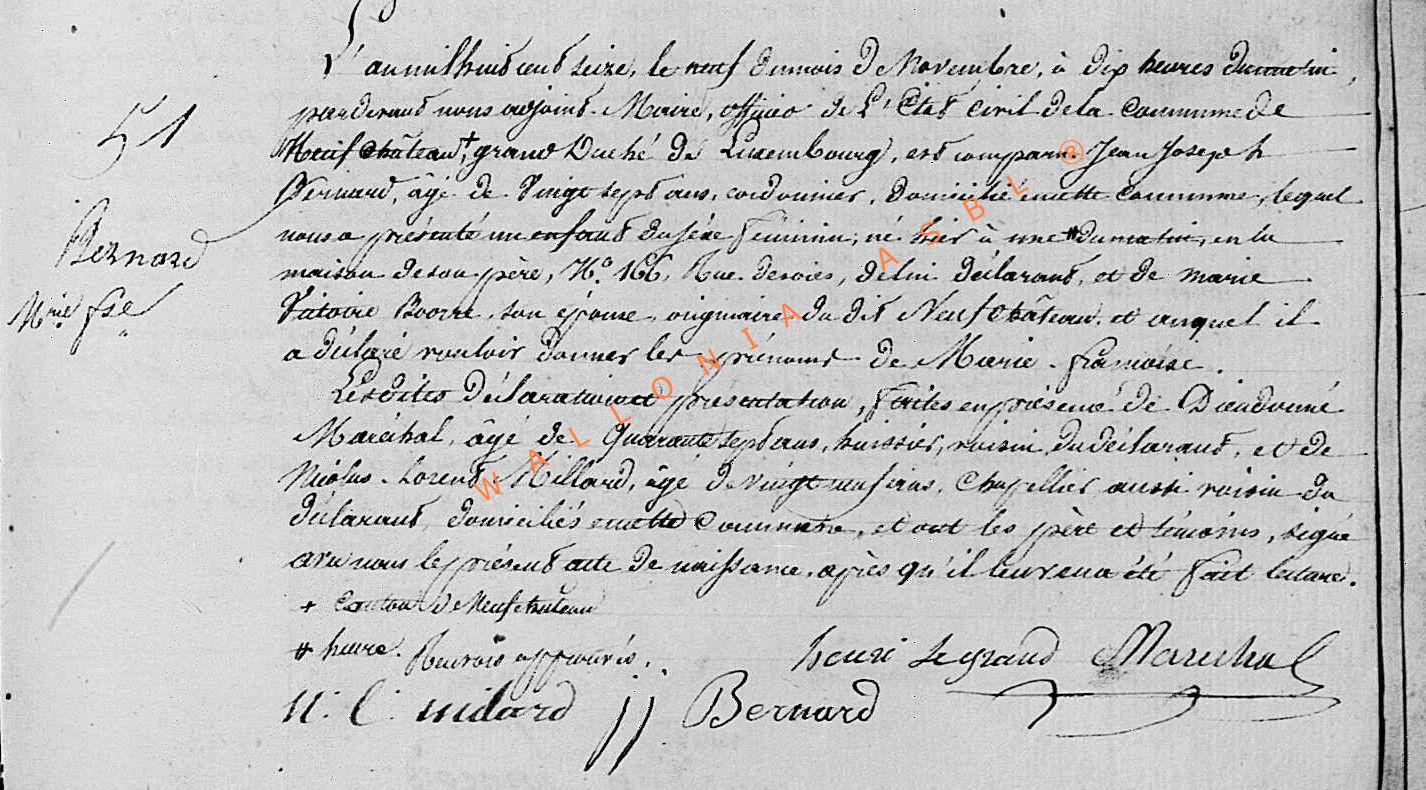 51
Bernard
Mrie fse
L'an mil huit cent seize, le neuf du mois de Novembre, à dix heures du matin,
pardevant nous adjoint-Maire, officier de L'Etat civil de la Commune de
Neufchâteau,+ grand Duché de Luxembourg, est comparu Jean Joseph
Bernard, âgé de Vingt sept ans, cordonnier, domicilié en cette Commune, lequel
nous a présenté un enfant du séxe Féminin, né hier à une # du matin, en la
maison de son père, No. 166, Rue , de lui déclarant, et de marie
Victoire , son épouse, originaire du dit Neufchâteau, et auquel il
a déclaré vouloir donner les prénoms de Marie-françoise.
Lesdites Déclaration et présentation, Faites en présence de Dieudonné
Maréchal, âgé de Quarante sept ans, huissier, voisin du déclarant, et de
Nicolas-Lorent Millard, âgé de vingt neuf ans, Chapellier aussi voisin du
déclarant, domiciliés en cette Commune, et ont les père et témoins, signé
avec nous le présent acte de naissance, après qu'il leur en a été Fait lecture.
+ Canton de Neufchateau
# heure. Renvois approuvés.
henri Legrand Marechal
N. L. milard jj Bernard
WALLONIA ASBL ®